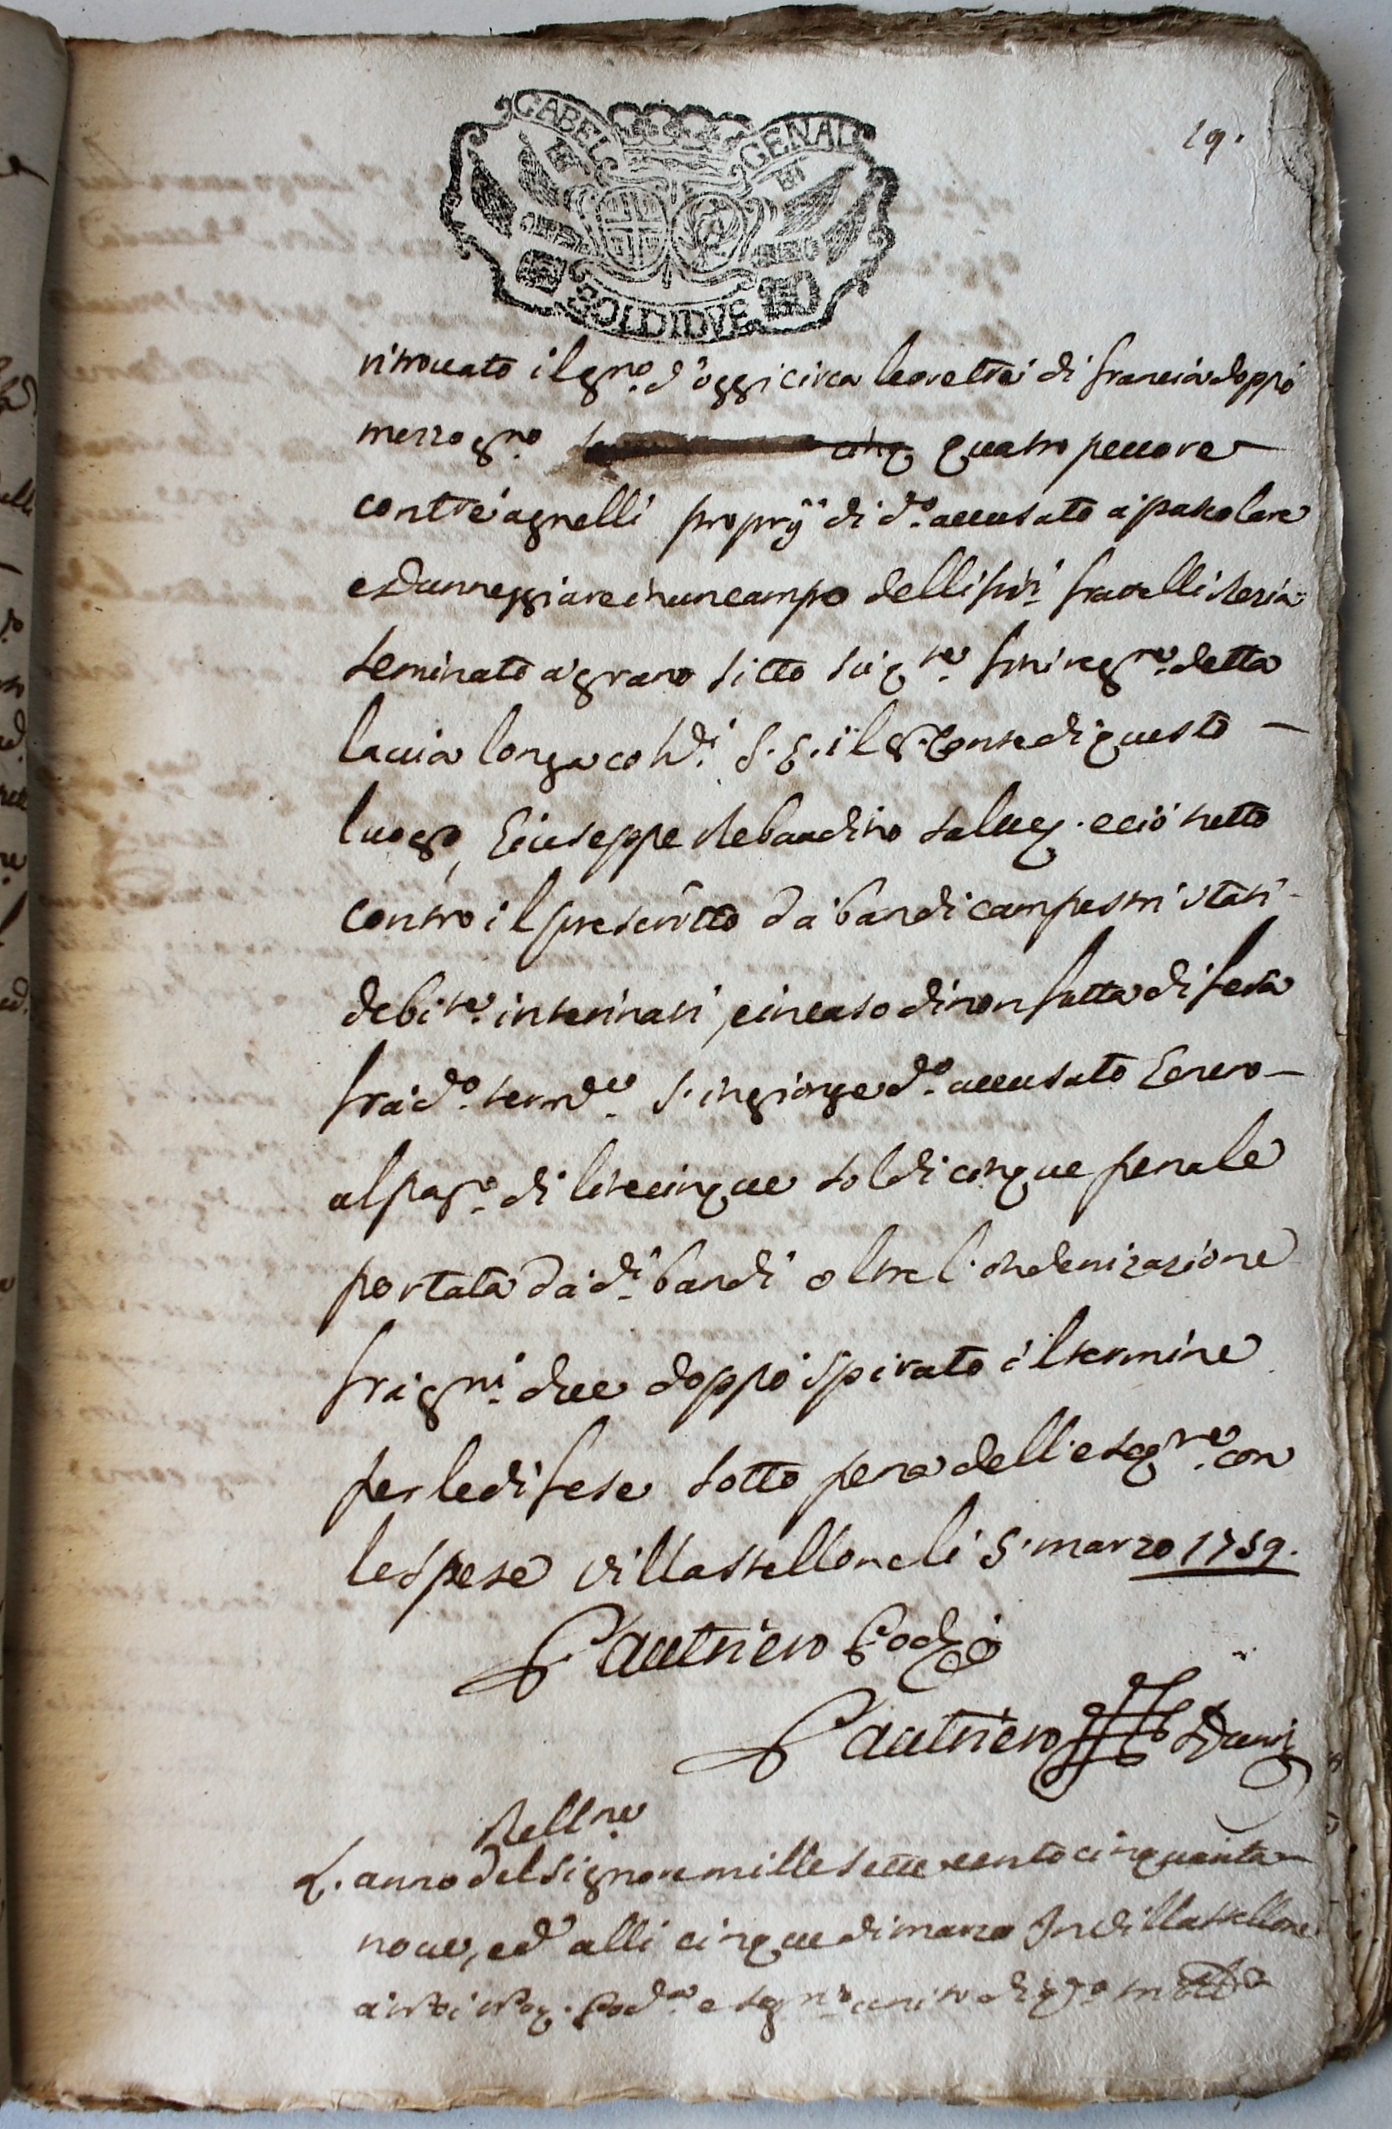 GABEL GENAL
ET ET
SOLDI DVE
19.
ritrouato il gno. d'oggi circa le ore tré di francia doppo
mezzo gno. cinq quatro pecore
con tré agnelli proprÿ di do. accusato a' pascolare
e danneggiare in un campo delli fratelli
seminato a' grano sitto detta
la via longa S. E. il Conte di questo
luogo, Giuseppe ecciò tutto
contro il prescritto da' bandi campestri stati
debite. interinati, e in caso di non fatta difesa
frà do. S. ingionge do. accusato
al pago. di lire cinque soldi cinque penale
portata da' di. bandi oltre l'indenizazione
frà gni. due doppo spirato il termine
per le difese sotto pena dell'esegne. con
le spese Villastellone li 5. marzo 1759.
Gautriero
Gautriero
Rellne
L'anno del Signore mille sette cento cinquanta
noue, ed alli cinque di marzo In Villastellone